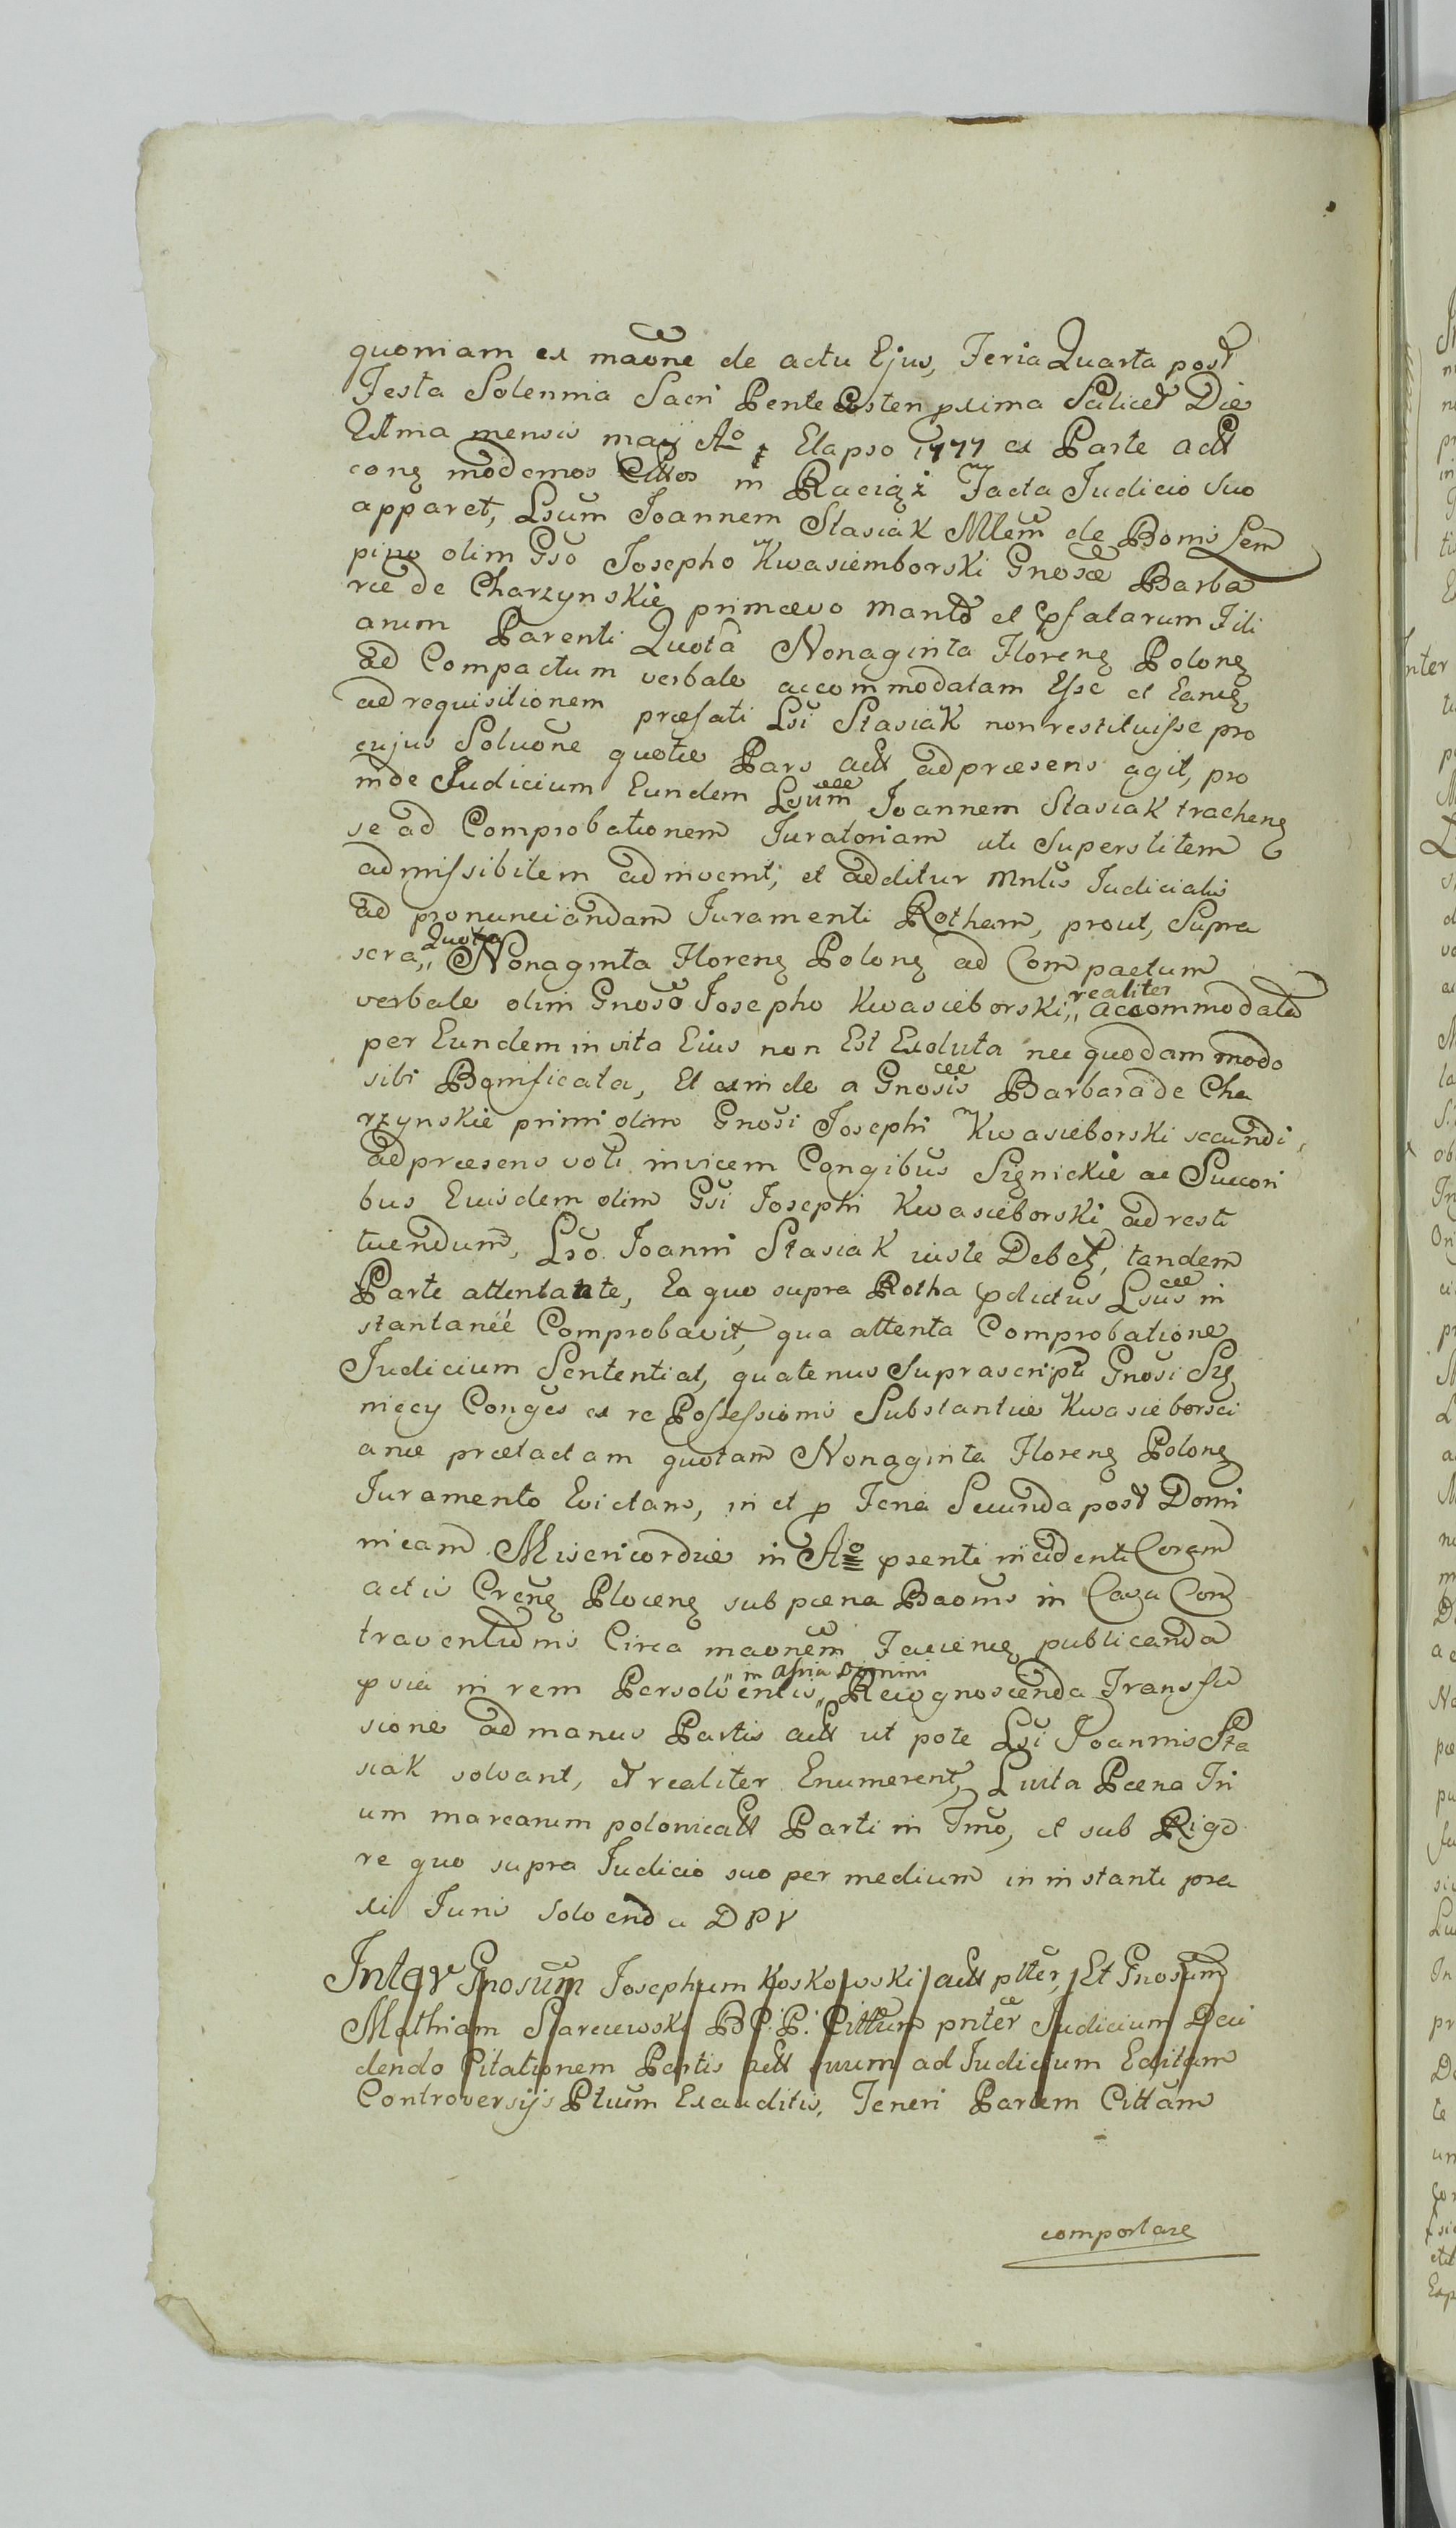 quoniam ex maone de actu Ejus, Feria Quarta post
Festa Solennia Sacri Pentecosten pxima Scilicet Die
Ultma mensis maij Ao Elapso 1777 ex Parte actt
conꝫ modernos Cittos in Raciąż Facta Judicio suo
apparet, Lsum Joannem Stasiak Mlem de Bonis Lem
pino olim Gso Josepho Kwasiemborski Gnosæ Barba
ræ de Charzynskie primævo manto et pfatarum Fili
arum Parenti Quota Nonaginta Florenꝫ Polonꝫ
ad Compactum verbale accommodatam Esse et Eamꝫ
ad requisitionem præfati Lsi Stasiak non restituisse pro
cujus Soluone quotæ Pars actt ad præsens agit, pro
inde Judicium Eundem Lsum Joannem Stasiak trachenꝫ
se ad Comprobationem Juratoriam uti Superstitem
admissibilem adinvenit, et additur Mnlis Judicialis
ad pronunciandam Juramenti Rotham, prout, Supra
sera,, Quota Nonaginta Florenꝫ Polonꝫ ad Compactum
verbale olim Gnoso Josepho Kwasieborski,, realiter accommodata
per Eundem in vita Eius non Est Exoluta nec quodammodo
sibi Bonificata, Et exinde a Gnosis Barbara de Cha
rzynskie primi olim Gnosi Josephi Kwasieborski secundi
ad præsens voti invicem Congibus Sęgnickie ac Succori
bus Eiusdem olim Gsi Josephi Kwasieborski ad resti
tuendum, Lso Joanni Stasiak iuste Debet, tandem
Parte attentante, Ea quo supra Rotha pdictus Lsus in
stantaneé Comprobavit, qua attenta Comprobatione
Judicium Sententiat, quatenus Suprascripti Gnosi Sęg
niccy Conges ex re Possessionis Substantiæ Kwasieborsci
anæ prætactam quotam Nonaginta Florenꝫ Polonꝫ
Juramento Evictam, in et p Feria Secunda post Domi
nicam Misericordiæ in Ao psenti incidenti Coram
actis Crenꝫ Plocenꝫ sub pœna Baonis in Casu Con
traventionis Circa maonem Facienꝫ publicanda
pvia in rem Persolventis,, in assia Domini Recognoscenda Transfu
sione ad manus Partis actt ut pote Lsi Joannis Sta
siak solvant, et realiter Enumerent, Luita Pœna Tri
um marcarum polonicatt Parti in Tmo, et sub Rigo
re quo supra Judicio suo per medium in instanti pra
xi Juris Solvenda DPV
Inter Gnosum Josephum Koskowski actt ptter, Et Gnosum
Mathiam Starczewski B.P.P. Cittum pnter Judicium Deci
dendo Citationem Partis actt suum ad Judicium Editam
Controversijs Ptium Exauditis, Teneri Partem Cittam
comportare